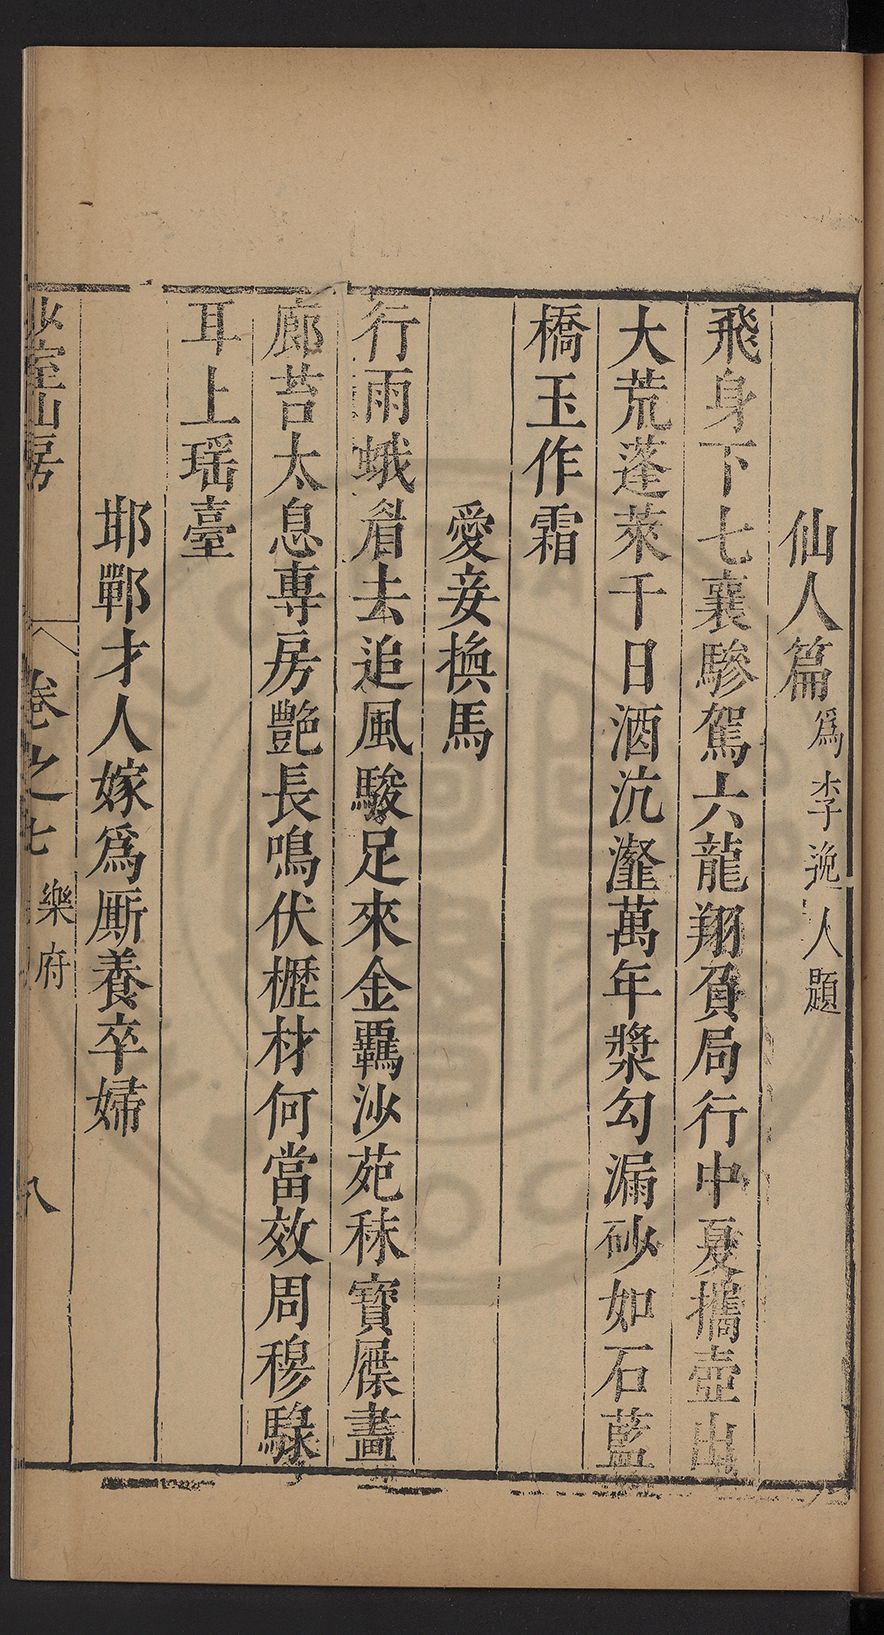 仙人篇 爲李逸人題
飛身下七襄驂駕六龍翔負局行中夏攜壺出
大荒蓬萊千日酒沆瀣萬年漿勾漏砂如石藍
橋玉作霜
愛妾換馬
行雨蛾眉去追風駿足來金羈沙苑秣寶屧畫
廊苔太息專房艷長鳴伏櫪材何當效周穆騄
耳上瑤臺
邯鄲才人嫁爲厮養卒婦
少室山房 卷之七 樂府 八